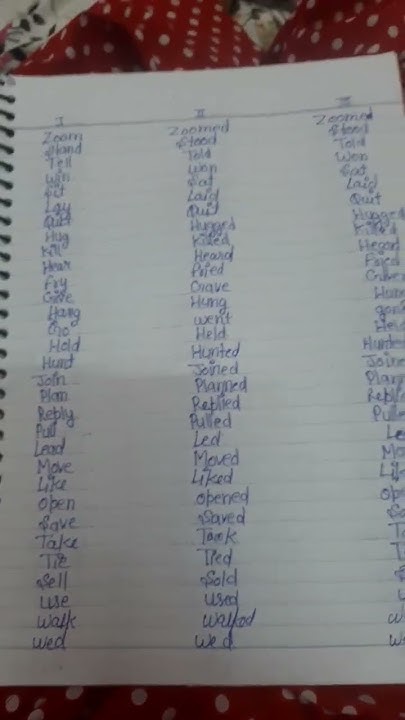 I II III
Zoom Zoomed Zoomed
Stand Stood Stood
Tell Told Told
Win Won Won
Sit Sat Sat
Lay Laid Laid
Quit Quit Quit
Hug Hugged Hugged
Kill Killed Killed
Hear Heard Heard
Fry Fried Fried
Give Gave Given
Hang Hung
Go went gone
Hold Held Held
Hunt Hunted Hunted
Join Joined Joine
Plan Planned Plann
Reply Replied Replie
Pull Pulled Pulle
Lead Led Le
Move Moved Mo
Like Liked Lik
Open Opened Ope
Save Saved Sa
Take Took Ta
Tie Tied T
Sell Sold S
Use Used U
Walk Walked W
Wed Wed W